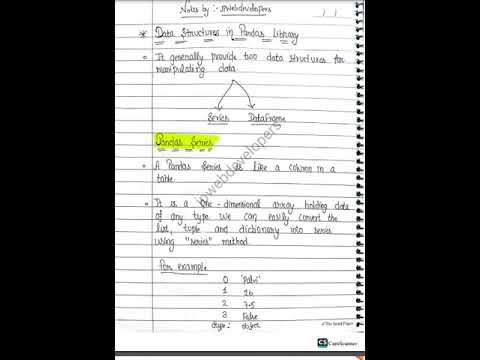 Notes by :- jpwebdevelopers
* Data Structures in Pandas Library
It generally provide two data structures for
manipulating data
Series DataFrame
Pandas Series
A Pandas Series is like a column in a
table.
It is a One-dimensional array holding data
of any type. We can easily convert the
list, tuple and dictionary into series
using "series" method.
for example
0
1 26
2 7.5
3 False
dtype: object
jpwebdevelopers
CS CamScanner